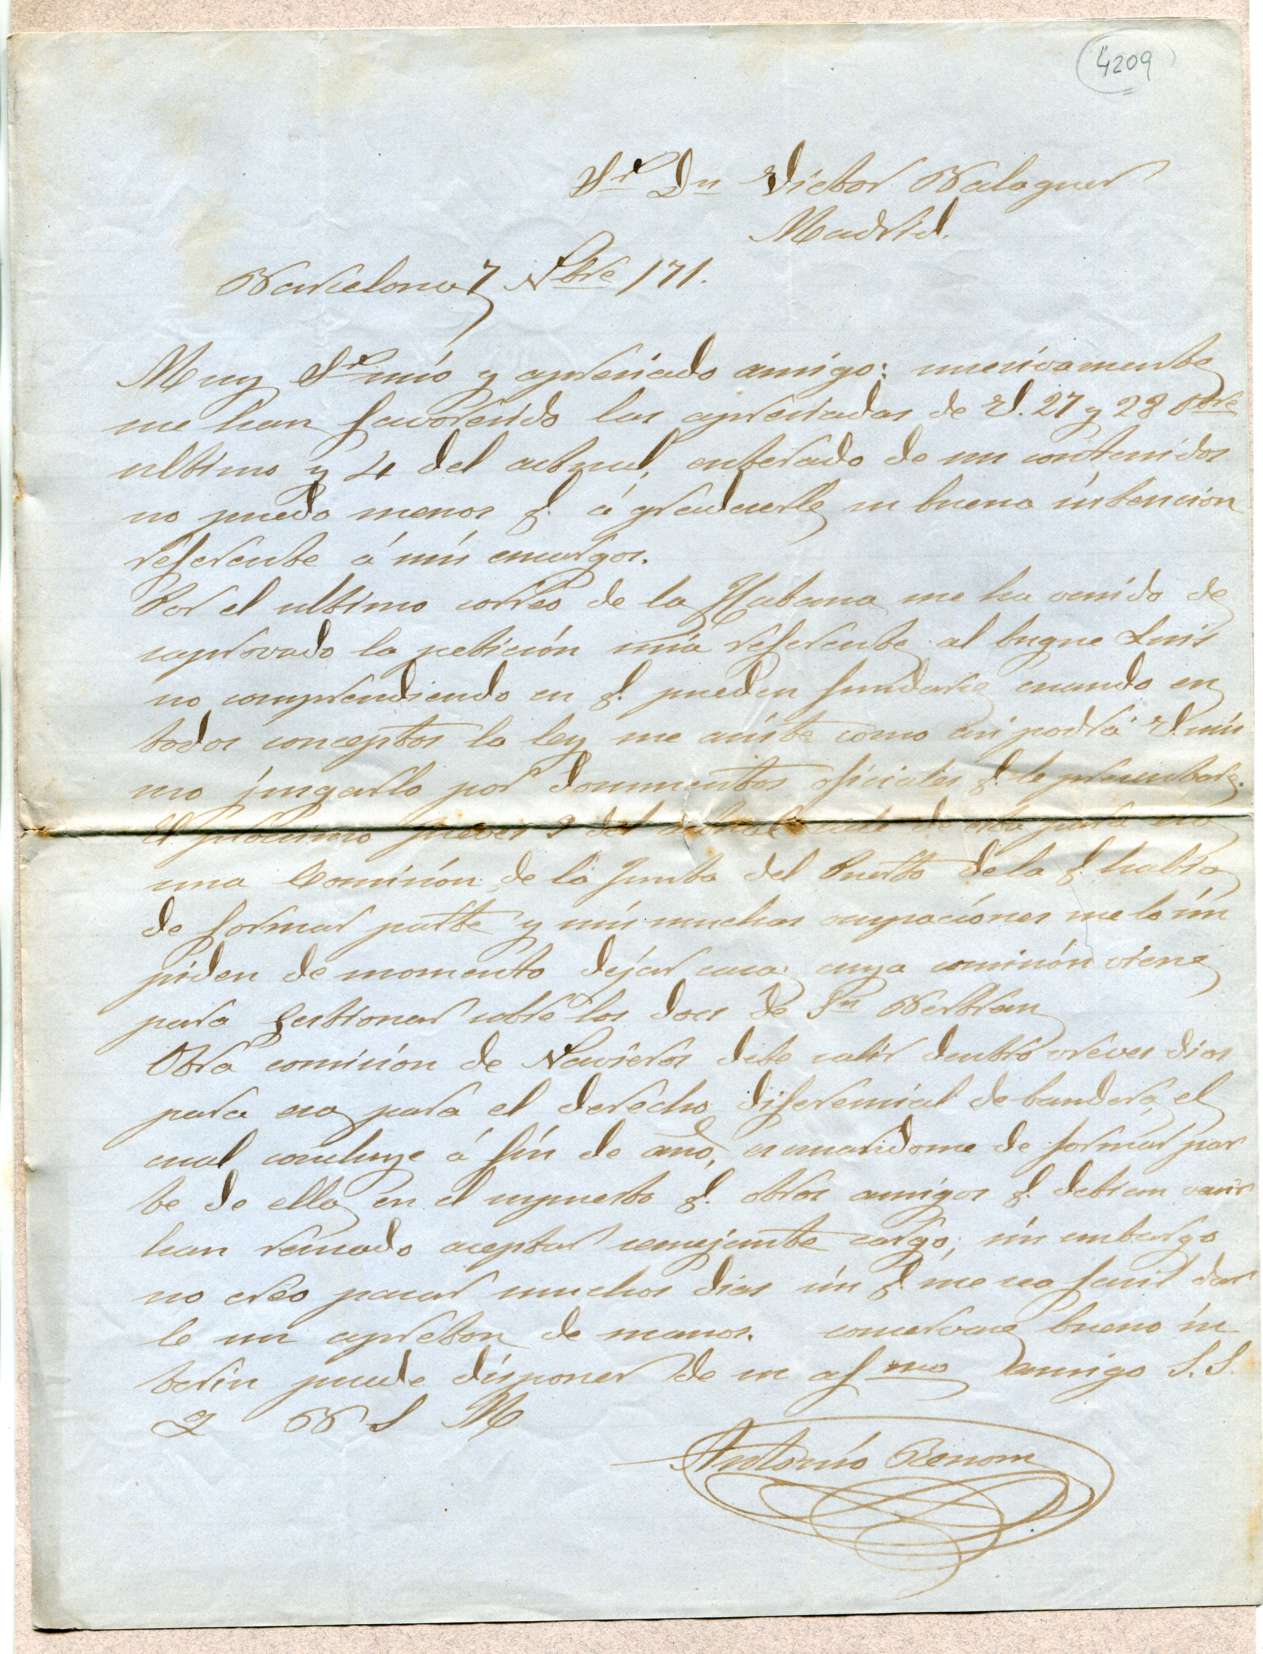 4209
Sr Dn Victor Balaguer
Madrid.
Barcelona 7 Nbre /71.
Muy Sr mio y apreciado amigo: nuevamente
me han favorecido las apreciadas de V. 27 y 28 Obre
ultimo y 4 del actual, enterado de su contenidos
no puedo menos q. á gradecerle su buena intencion
referente á mis encargos.
Por el ultimo correo de la Habana me ha venido de
saprovado la petición mia referente al buque Luis
no comprendiendo en q. pueden fundarse cuando en
todos conceptos la ley me asiste como asi podrá V. mis
mo jusgarlo por documentos oficiales q. le presentare.
El procsimo jueves 9 del actual sale de esta para esa
una Comisión de la Junta del Puerto de la q. habia
de formar parte y mis muchas ocupaciones me lo im
piden de momento dejar casa cuya comisión viene
para gestionar sobre los docs de Sn Bertran
Otra comisión de Navieros debe salir dentro breves dias
para esa para el derecho diferencial de bandera, el
cual concluye á fin de año, escusandome de formar par
te de ella en el supuesto q. otros amigos q. debian venir
han reusado aceptar semejante cargo; sin embargo
no creo pasar muchos dias sin q. me sea facil dar
le un apreton de manos. conservese bueno in
terin puede disponer de su afmo amigo S. S.
Q B S M
Antonio Renom